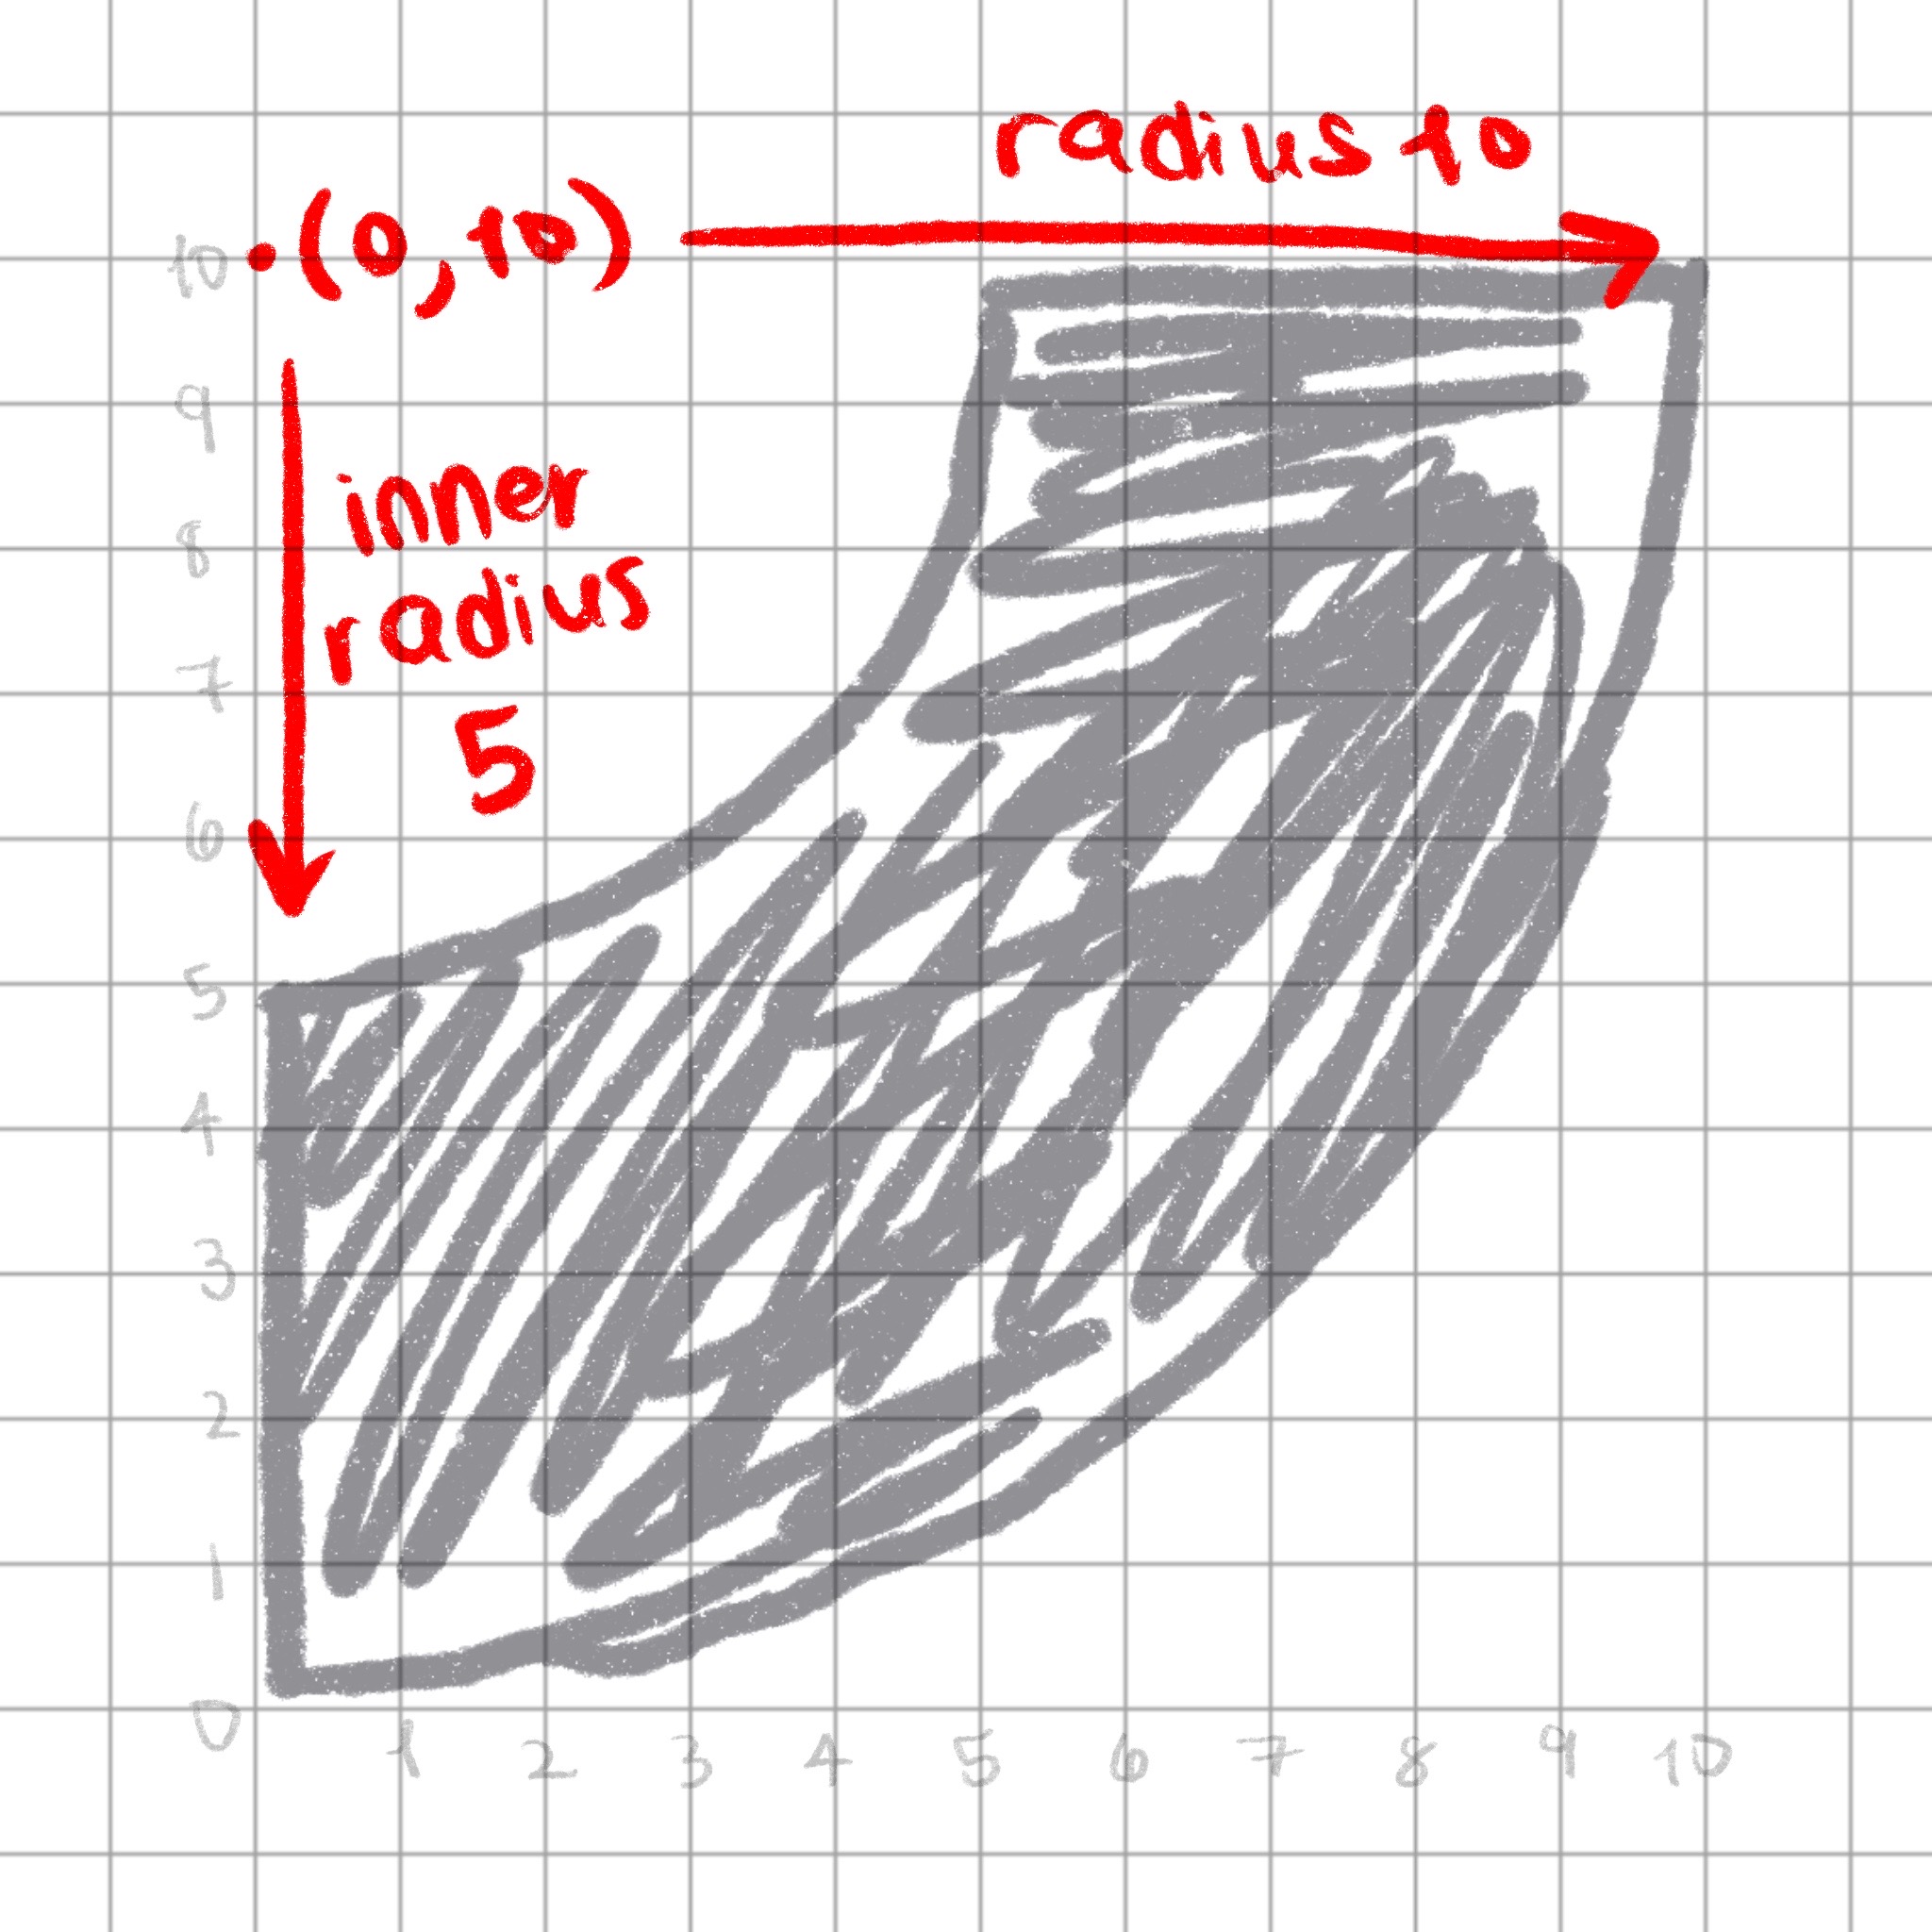 radius 10
(0,10)
inner
radius
5
10
9
8
7
6
5
4
3
2
1
0
1 2 3 4 5 6 7 8 9 10